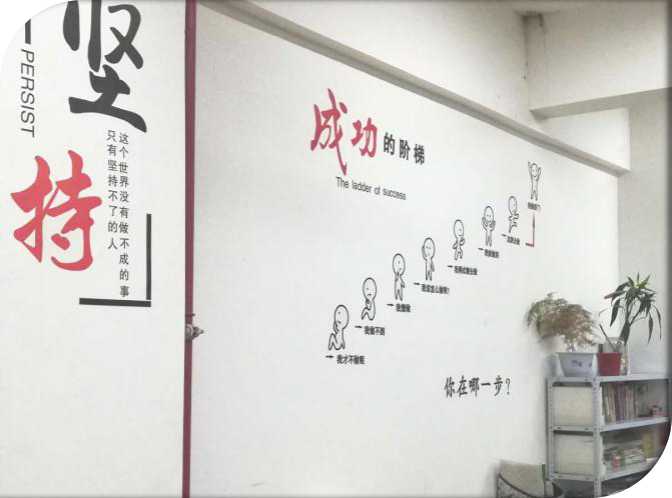 坚持
PERSIST
这个世界没有做不成的事
只有坚持不了的人
成功的阶梯
The ladder of success
我才不做呢
我做不到
我想做
我该怎么做呢?
我再试着去做
我能做到
我成功了
你在哪一步?